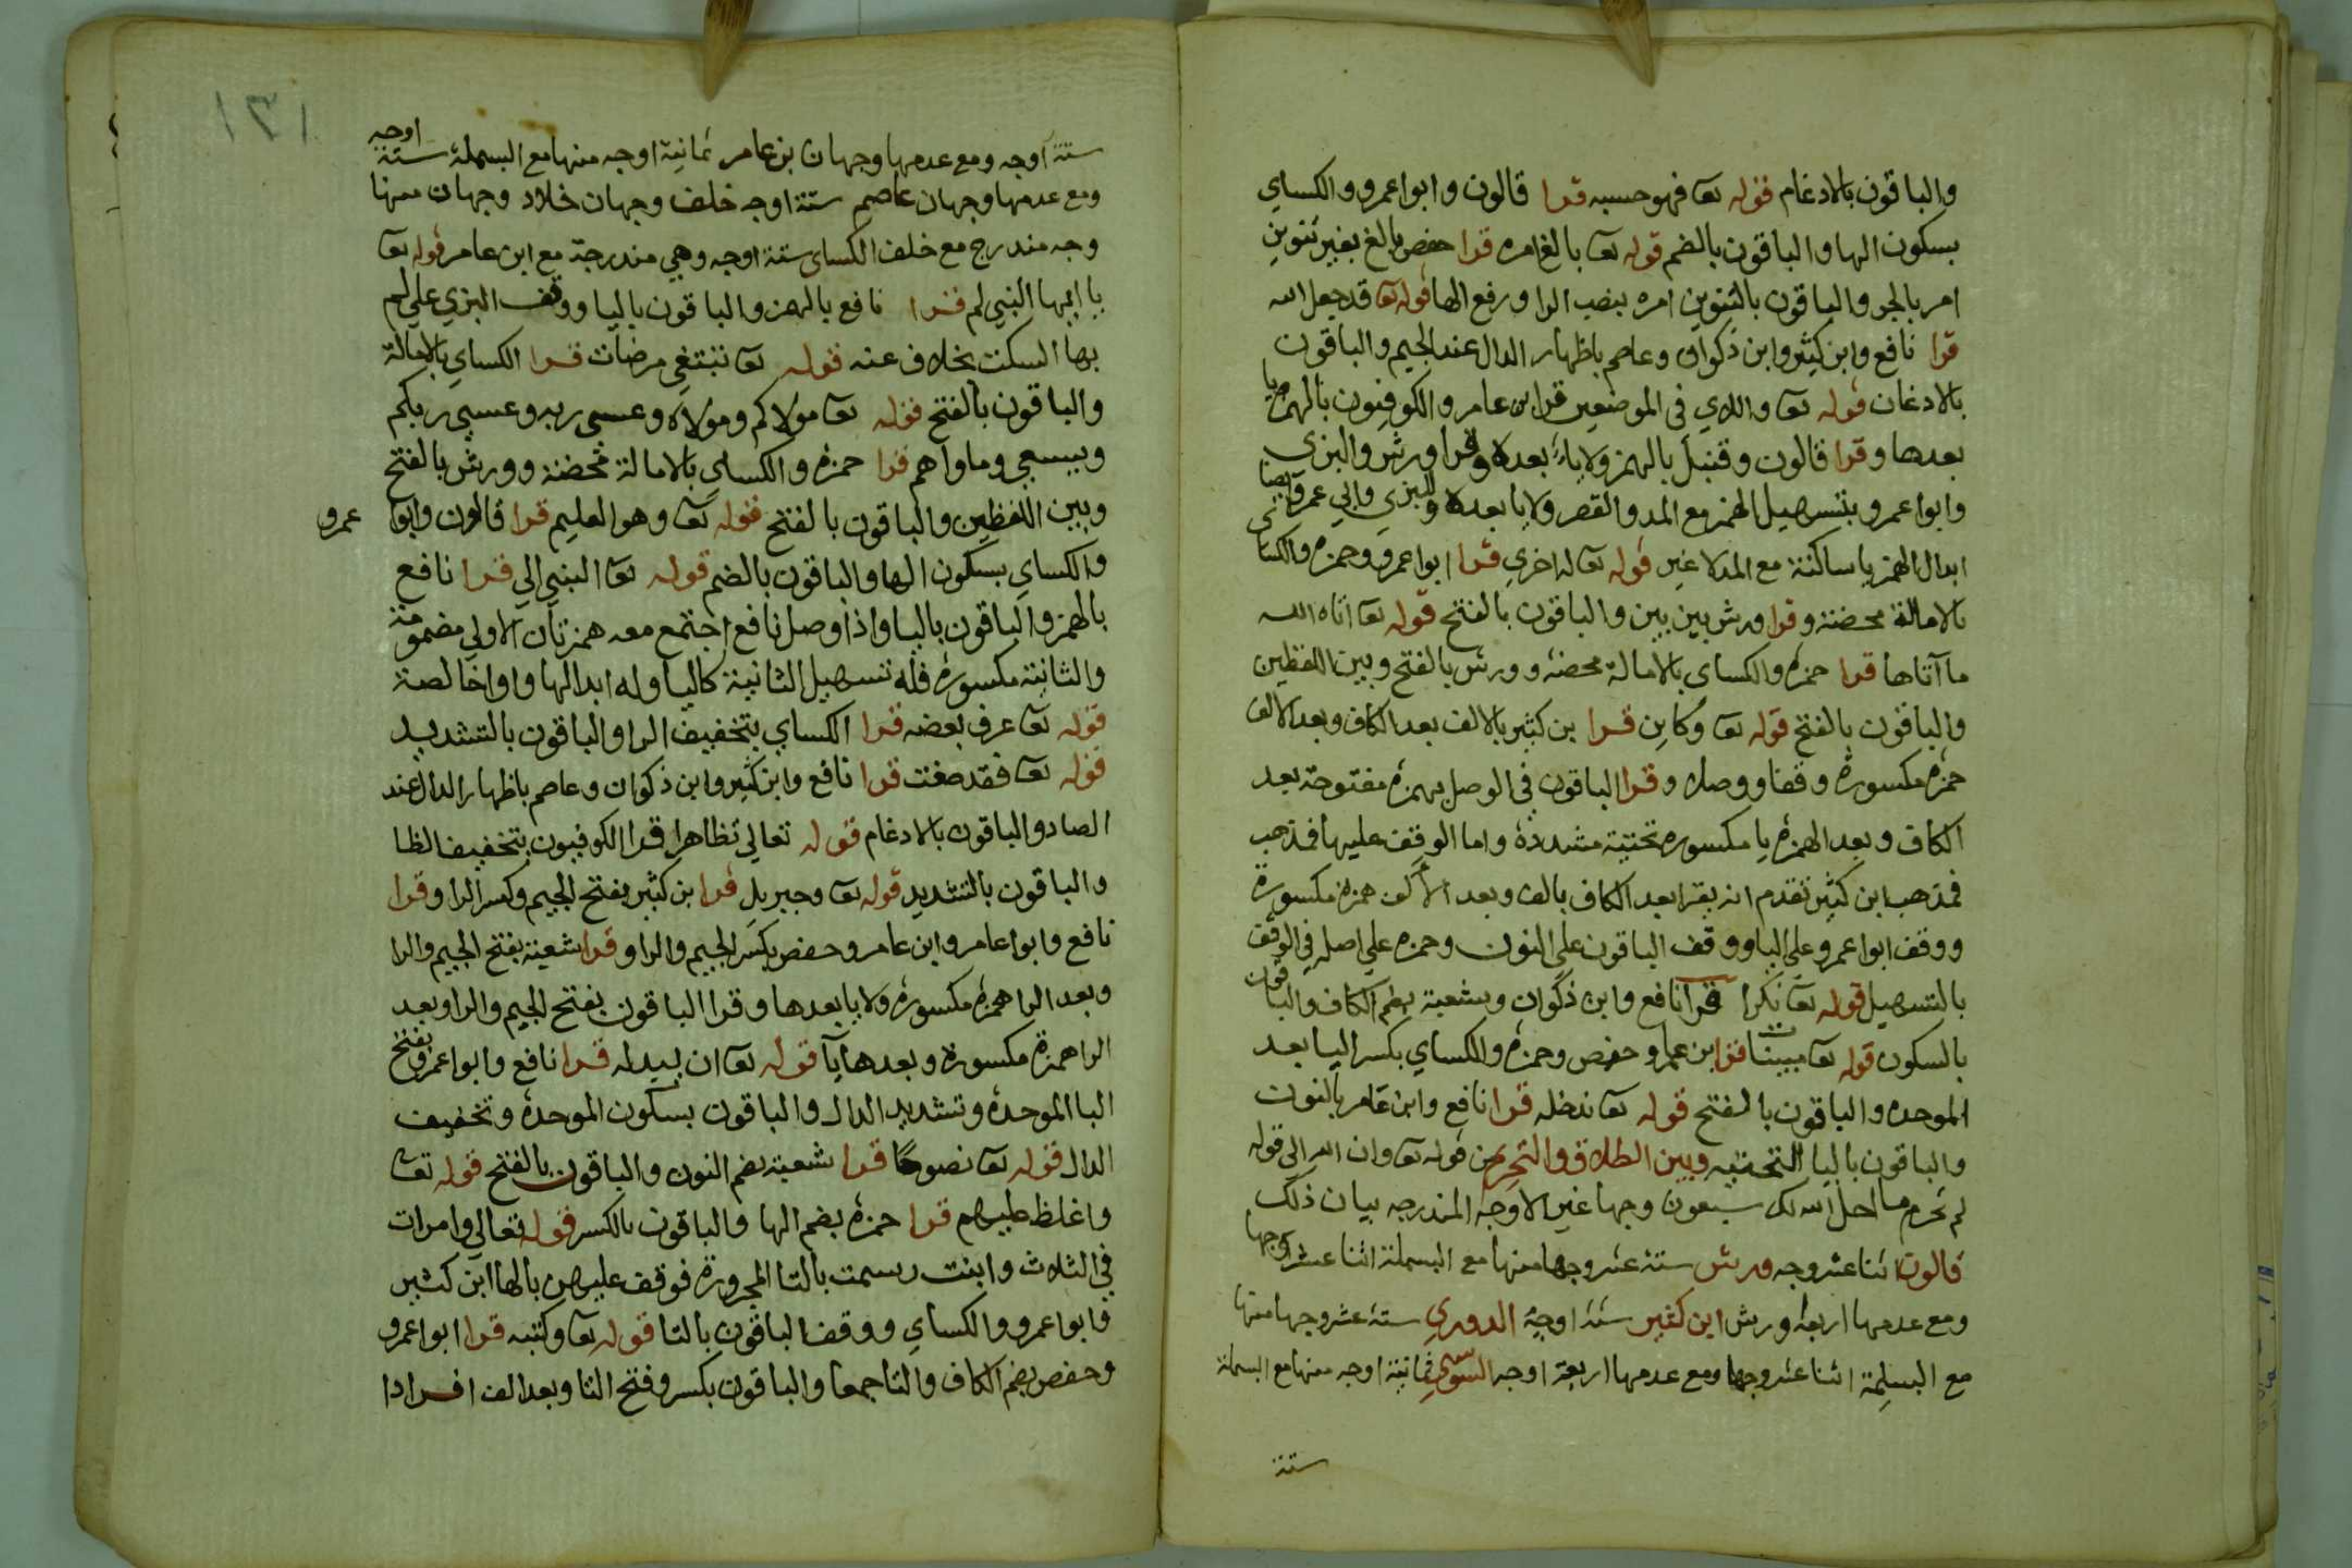 والباقون بالادغام قوله تع فهو حسبه قرا قالون وابوا عمرو والكساي
بسكون الها والباقون بالضم قوله تع بالغ امره قرا حفص بالغ بغير تنوين
امر بالجر والباقون بالتنوين امره بنصب الرا ورفع الها قوله تع قد جعل الله
قرا نافع وابن كثير وابن ذكوان وعاصم باظهار الدال عند الجيم والباقون
بالادغان قوله تع واللاي في الموضعين قرا ابن عامر والكوفيون بالهمز يا
بعدها وقرا قالون وقنبل بالهمز ولا ياء بعدها وقرا ورش والبزي
وابوا عمرو بتسهيل الهمز مع المد والقصر ولا يا بعدها وللبزي وابي عمرو ايضا
ابدال الهمز يا ساكنة مع المد لا غير قوله تع له اخري قرا ابوا عمرو وحمزه والكساي
بالامالة محضة وقرا ورش بين بين والباقون بالفتح قوله تع اتاه الله
ما آتاها قرا حمزه والكساي بالامالة محضة وورش بالفتح وبين اللفظين
والباقون بالفتح قوله تع وكاين قرا بن كثير بالالف بعد الكاف وبعد الالف
حمزه مكسورة وقفا ووصلا وقرا الباقون في الوصل بهمزه مفتوحة بعد
الكاف وبعد الهمزه يا مكسوره تحتية مشددة واما الوقف عليها فمذهب
فمذهب ابن كثير تقدم انه يقرا بعد الكاف بالف وبعد الالف همزه مكسورة
ووقف ابوا عمرو علي اليا ووقف الباقون علي النون وحمزه علي اصله في الوقف
بالتسهيل قوله تع نكرا قرا نافع وابن ذكوان وشعبة بضم الكاف والباقون
بالسكون قوله تع مبينات قرا بن عامر وحفص وحمزه والكساي بكسر اليا بعد
الموحده والباقون بالفتح قوله تع ندخله قرا نافع وابن عامر بالنون
والباقون باليا التحتيه وبين الطلاق والتحريم من قوله تع وان الله الي قوله
لم تحرم ما احل الله لك سبعون وجها غير الاوجه المندرجه بيان ذلك
قالون اثنا عشر وجه ورش ستة عشر وجها منها مع البسملة اثنا عشر وجها
ومع عدمها اربعه ورش ابن كثير ستة اوجه الدوري ستة عشر وجها منها
مع البسملة اثنا عشر وجها ومع عدمها اربعة اوجه السوسي ثمانية اوجه منها مع البسملة
ستة
١٣١
ستة اوجه ومع عدمها وجهان بن عامر ثمانية اوجه منها مع البسملة ستة اوجه
ومع عدمها وجهان عاصم ستة اوجه خلف وجهان خلاد وجهان منها
وجه مندرج مع خلف الكساي ستة اوجه وهي مندرجة مع ابن عامر قوله تع
يا ايها النبي لم قرا نافع بالهمز والباقون باليا ووقف البزي علي لم
بها السكت بخلاف عنه قوله تع تبتغي مرضات قرا الكساي بالامالة
والباقون بالفتح قوله تع مولاكم ومولاه وعسى ربه وعسي ربكم
ويسعي وماواهم قرا حمزه والكساي بالامالة محضة وورش بالفتح
وبين اللفظين والباقون بالفتح قوله تع وهو العليم قرا قالون وابوا عمرو
والكساي بسكون الها والباقون بالضم قوله تع النبي الي قرا نافع
بالهمز والباقون باليا واذا وصل نافع اجتمع معه همزتان الاولي مضمومة
والثانية مكسورة فله تسهيل الثانية كاليا وله ابدالها واوا خالصة
قوله تع عرف بعضه قرا الكساي بتخفيف الرا والباقون بالتشديد
قوله تع فقد صغت قرا نافع وابن كثير وابن ذكوان وعاصم باظهار الدال عند
الصاد والباقون بالادغام قوله تعالي تظاهرا قرا الكوفيون بتخفيف الظا
والباقون بالتشديد قوله تع وجبريل قرا بن كثير بفتح الجيم وكسر الرا وقرا
نافع وابوا عامر وابن عامر وحفص بكسر الجيم والرا وقرا شعبة بفتح الجيم والرا
وبعد الرا همزه مكسوره ولا يا بعدها وقرا الباقون بفتح الجيم والرا وبعد
الرا همزة مكسورة وبعدها يآ قوله تع ان يبدله قرا نافع وابوا عمرو بفتح
البا الموحدة وتشديد الدال والباقون بسكون الموحدة وتخفيف
الدال قوله تع نصوحا قرا شعبة بضم النون والباقون بالفتح قوله تع
واغلظ عليهم قرا حمزه بضم الها والباقون بالكسر قوله تعالي وامرات
في الثلاث وابنت رسمت بالتا المجرورة فوقف عليهن بالها ابن كثير
وابوا عمرو والكساي ووقف الباقون بالتا قوله تع وكتبه قرا ابوا عمرو
وحفص بضم الكاف والتا جمعا والباقون بكسر وفتح التا وبعد الف افرادا